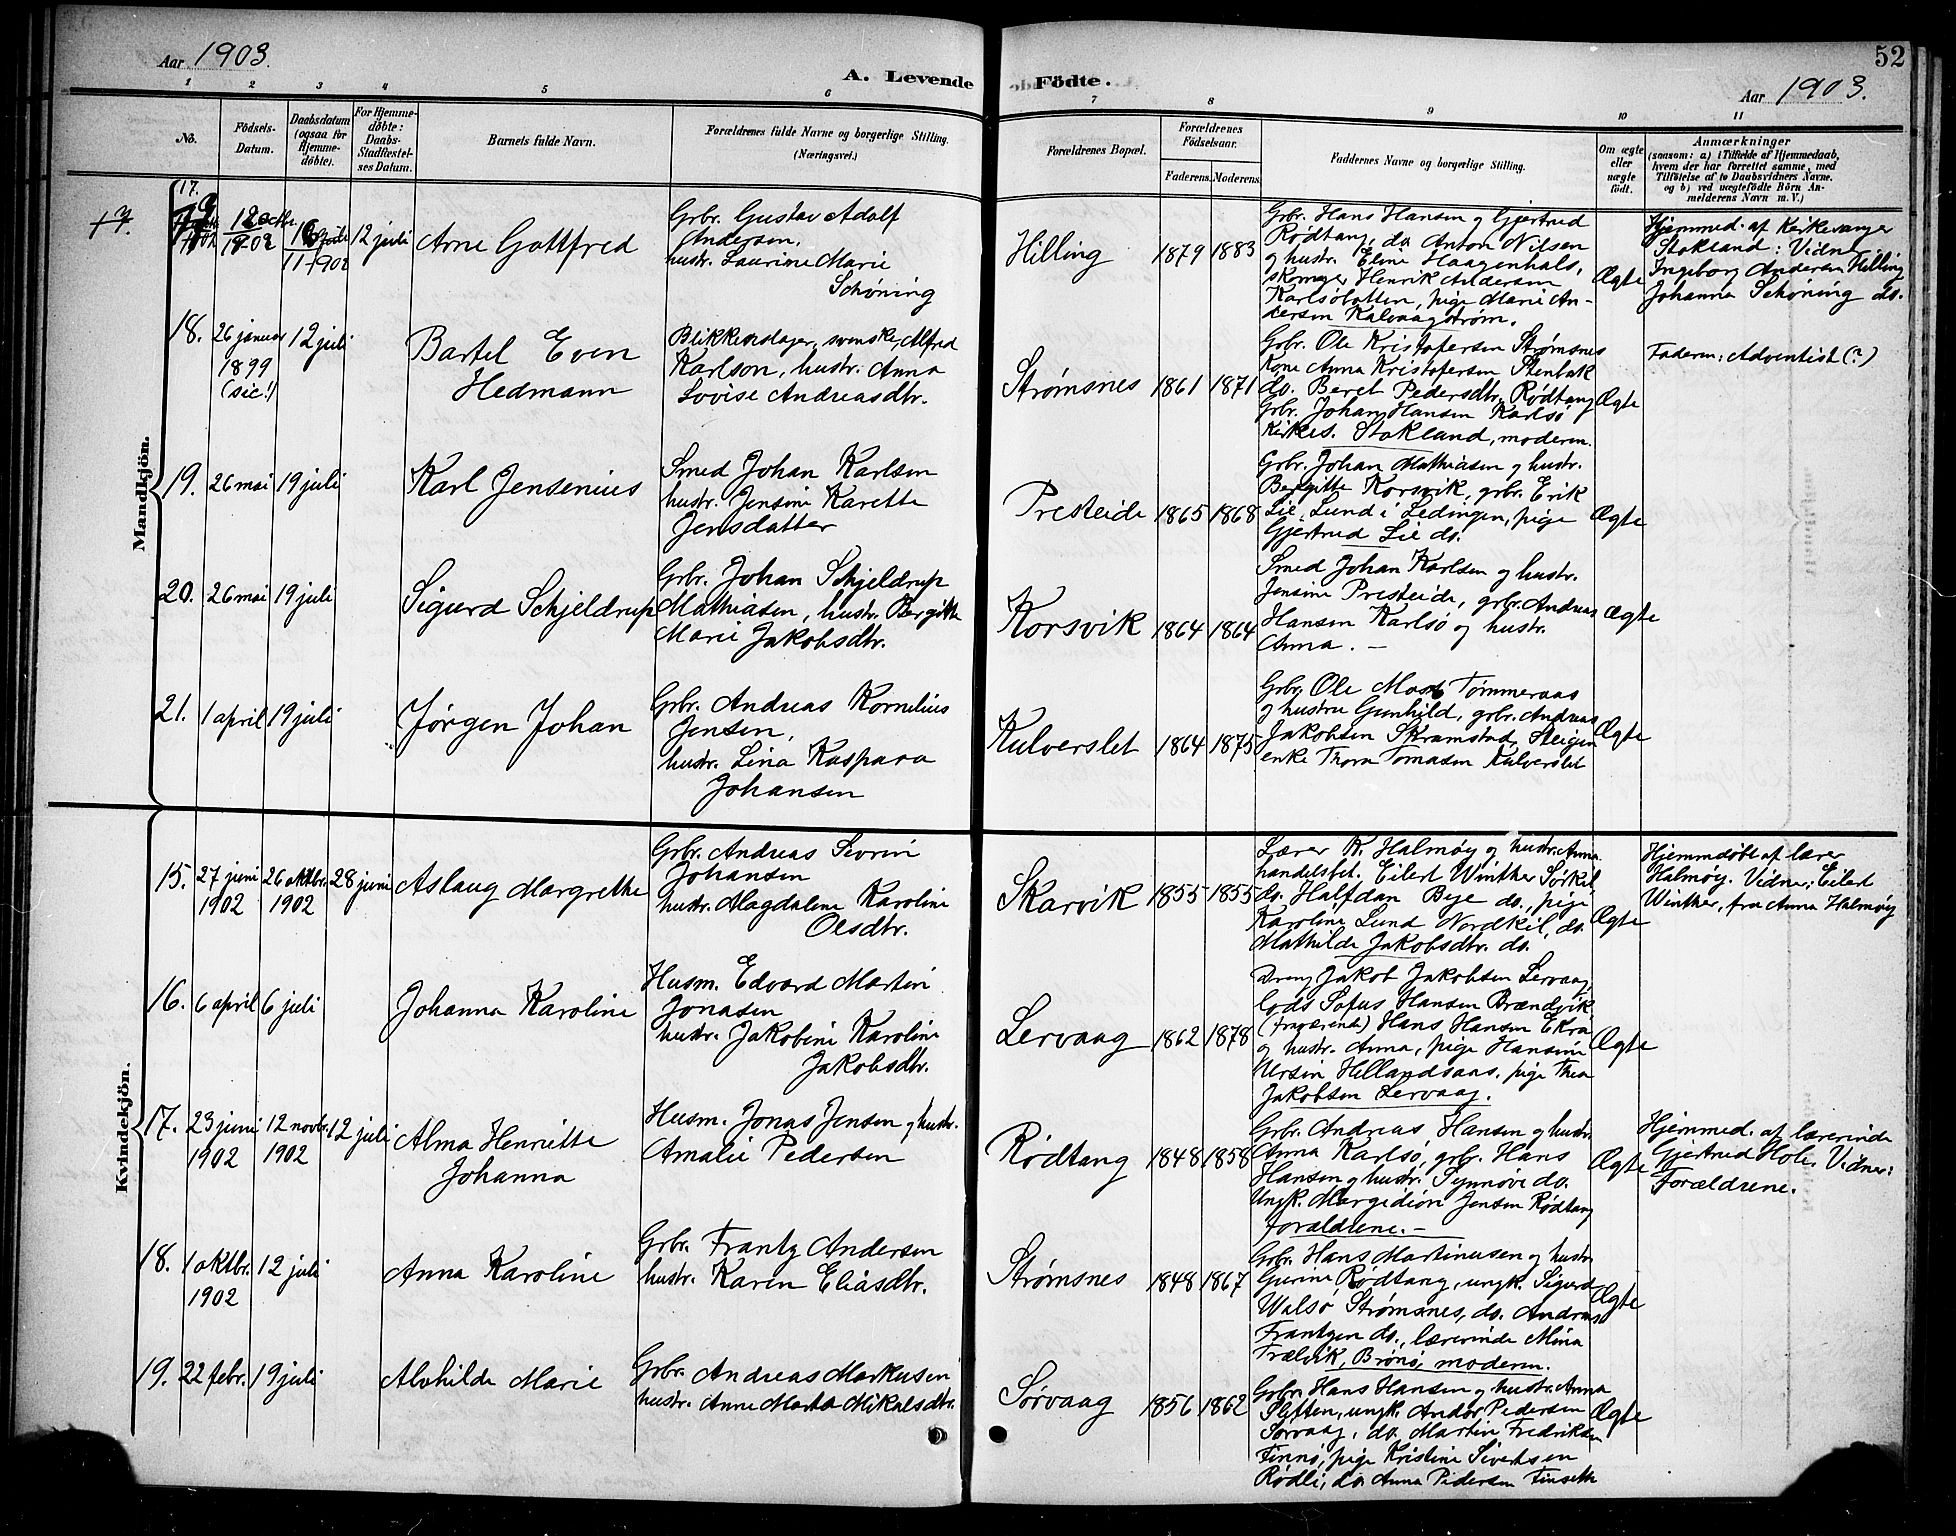 Aar 1903.
A. Levende
Födte.
Aar 1903.
52
1 2 3 4 5 6 7 8 9 10 11
No.
Födsels-
Datum.
Daabsdatum
(ogsaa for
Hjemme-
döbte).
For Hjemme-
döbte:
Daabs-
Stadfæstel-
ses Datum.
Barnets fulde Navn.
Forældrenes fulde Navne og borgerlige Stilling.
(Næringsvei.)
Forældrenes Bopæl.
Forældrenes
Födselsaar.
Faderens. Moderens.
Faddernes Navne og borgerlige Stilling.
Om ægte
eller
uægte
födt.
Anmærkninger
(saasom: a) i Tilfælde af Hjemmedaab,
hvem der har forrettet samme, med
Tilföielse af to Daabsvidners Navne,
og b) ved uægtefödte Börn An-
melderens Navn m. V.)
Mandkjön.
17.
12 juli
Arne Gottfred
Grbr. Gustav Adolf
Andersen,
hustr. Laurine Marie
Schöning
Hilling
1879 1883
Grbr. Hans Hansen og Gjertrud
Rødtang, do. Anton Nilsen
og hustr. Eline Haagenhals,
skomager Henrik Andersen
Karlsöbotten, pige Marie An-
dersen Kalvaagstrøm.
Ægte
Hjemmed. af Kirkesanger
Stokland: Vidner:
Ingeborg Andersen Hilling
Johanna Schöning do.
18.
26 januar
1899
(sic!)
12 juli
Bartel Even
Hedmann
Blikkenslager, svenske, Alfred
Karlson, hustr. Anna
Lovise Andreasdtr.
Strømsnes
1861 1871
Grbr. Ole Kristofersen Strømsnes
Kone Anna Kristofersen Stenbak
do. Beret Pedersdtr. Rødtang
Grbr. Johan Hansen Karlsø
Kirkes. Stokland, moderen.
Ægte
Faderen: Adventist (?)
19.
26 mai
19 juli
Karl Jensenius
Smed Johan Karlsen
hustr. Jensine Karette
Jensdatter
Presteide
1865 1868
Grbr. Johan Mathiasen og hustr.
Bergitte Korsvik, grbr. Erik
Lie, Lund i Lødingen, pige
Gjertrud Lie do.
Ægte
20.
26 mai
19 juli
Sigurd Schjeldrup
Grbr. Johan Schjeldrup
Mathiasen, hustr. Bergitte
Marie Jakobsdtr.
Korsvik
1864 1864
Smed Johan Karlsen og hustr.
Jensine Presteide, grbr. Andreas
Hansen Karlsø og hustr.
Anna. —
Ægte
21.
1 april
19 juli
Jørgen Johan
Grbr. Andreas Kornelius
Jensen,
hustr. Lina Kaspara
Johansen
Kulverslet
1864 1875
Grbr. Ole Tømmeraas
og hustru Gunhild, grbr. Andreas
Jakobsen Skramstad, Steigen
enke Thora Tomasen Kulverslet
Ægte
Kvindekjön.
15.
27 juni
1902
26 oktbr.
1902
28 juni
Aslaug Margrethe
Grbr. Andreas Severin
Johansen
hustr. Magdalene Karoline
Olsdtr.
Skarvik
1855 1855
Lærer K. Halmøy og hustr. Anna
handelsbet. Eilert Winther Sørkil
do. Halfdan Bye do., pige
Karoline Lund Nordkil, do.
Mathilde Jakobsdtr. do.
Ægte
Hjemmdøbt af lærer
Halmøy. Vidner: Eilert
Winther, fru Anna Halmøy
16.
6 april
6 juli
Johanna Karoline
Husm. Edvard Martin
Jonasen
hustr. Jakobine Karoline
Jakobsdtr.
Lervaag
1862 1878
Dreng Jakob Jakobsen Lervaag,
lods Sofus Hansen Brændvik
(fraværende) Hans Hansen Ekra
og hustr. Anna, pige Hansine
Ursin Hillandsaas, pige Thea
Jakobsen Lervaag.
Ægte
17.
23 juni
1902
12 novbr.
1902
12 juli
Alma Henriette
Johanna
Husm. Jonas Jensen og hustr.
Amalie Pedersen
Rødtang
1848 1858
Grbr. Andreas Hansen og hustr.
Anna Karlsø, grbr. Hans
Hansen og hustr. Synnøve do.
Ungk. Margidion Jensen Rødtang
forældrene. —
Ægte
Hjemmed. af lærerinde
Gjertrud Hole. Vidner:
Forældrene.
18.
1 oktbr.
1902
12 juli
Anna Karoline
Grbr. Frantz Andersen
hustr. Karen Eliasdtr.
Strømsnes
1848 1867
Grbr. Hans Martinusen og hustr.
Gurine Rødtang, ungk. Sigurd
Walsø Strømsnes, do. Andreas
Frantzen do., lærerinde Mina
Trælvik, Brønø, moderen.
Ægte
19.
22 febr.
19 juli
Alvhilde Marie
Grbr. Andreas Markusen
hustr. Anne Marta Mikalsdtr.
Sørvaag
1856 1862
Grbr. Hans Hansen og hustr. Anna
Sletten, ungk. Andor Pedersen
Sørvaag, do. Martin Fredriksen
Finnø, pige Kristine Sivertsen
Rødli, do. Anna Pedersen Finseth
Ægte